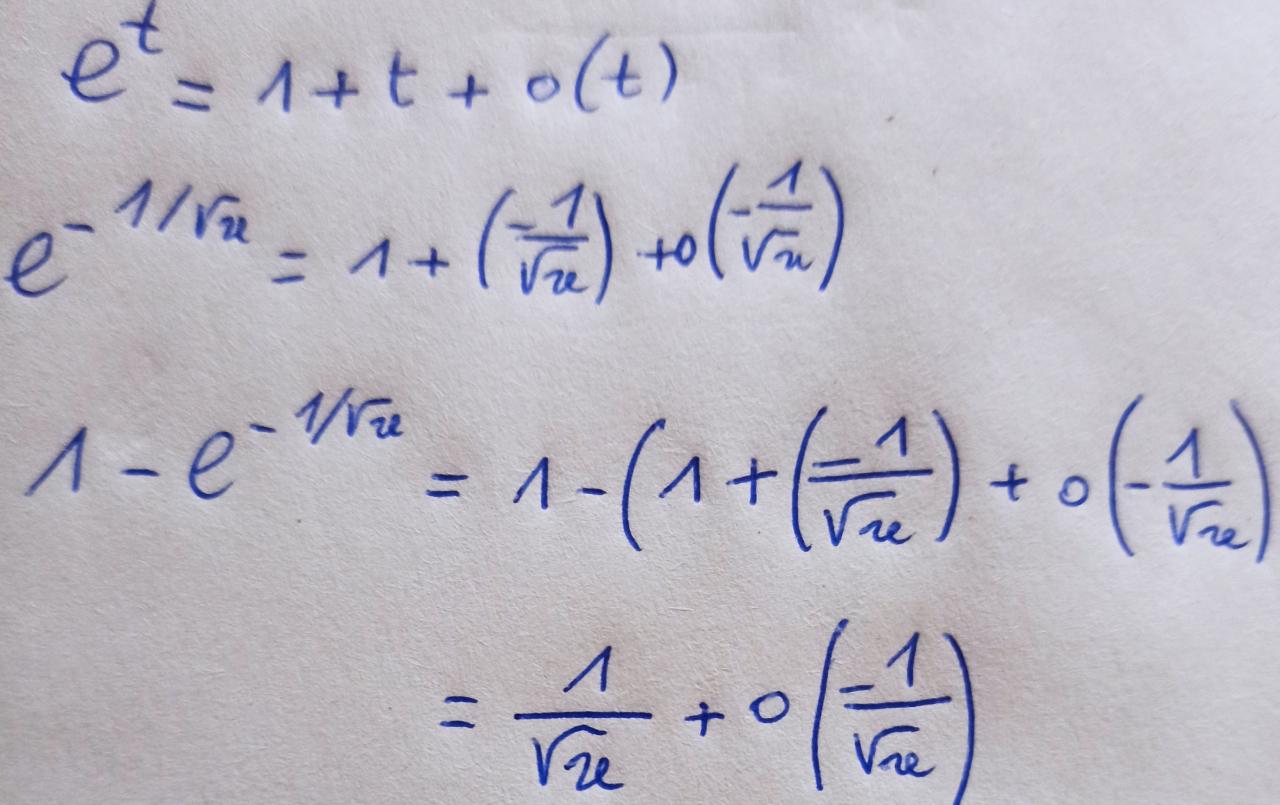 e^t = 1 + t + o(t)
e^{-1/√x} = 1 + (-1/√x) + o(-1/√x)
1 - e^{-1/√x} = 1 - (1 + (-1/√x) + o(-1/√x)
= 1/√x + o(-1/√x)